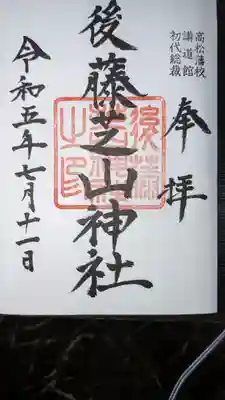 高松藩校
講道館
初代総裁
奉拝
後藤芝山神社
令和五年七月十一日